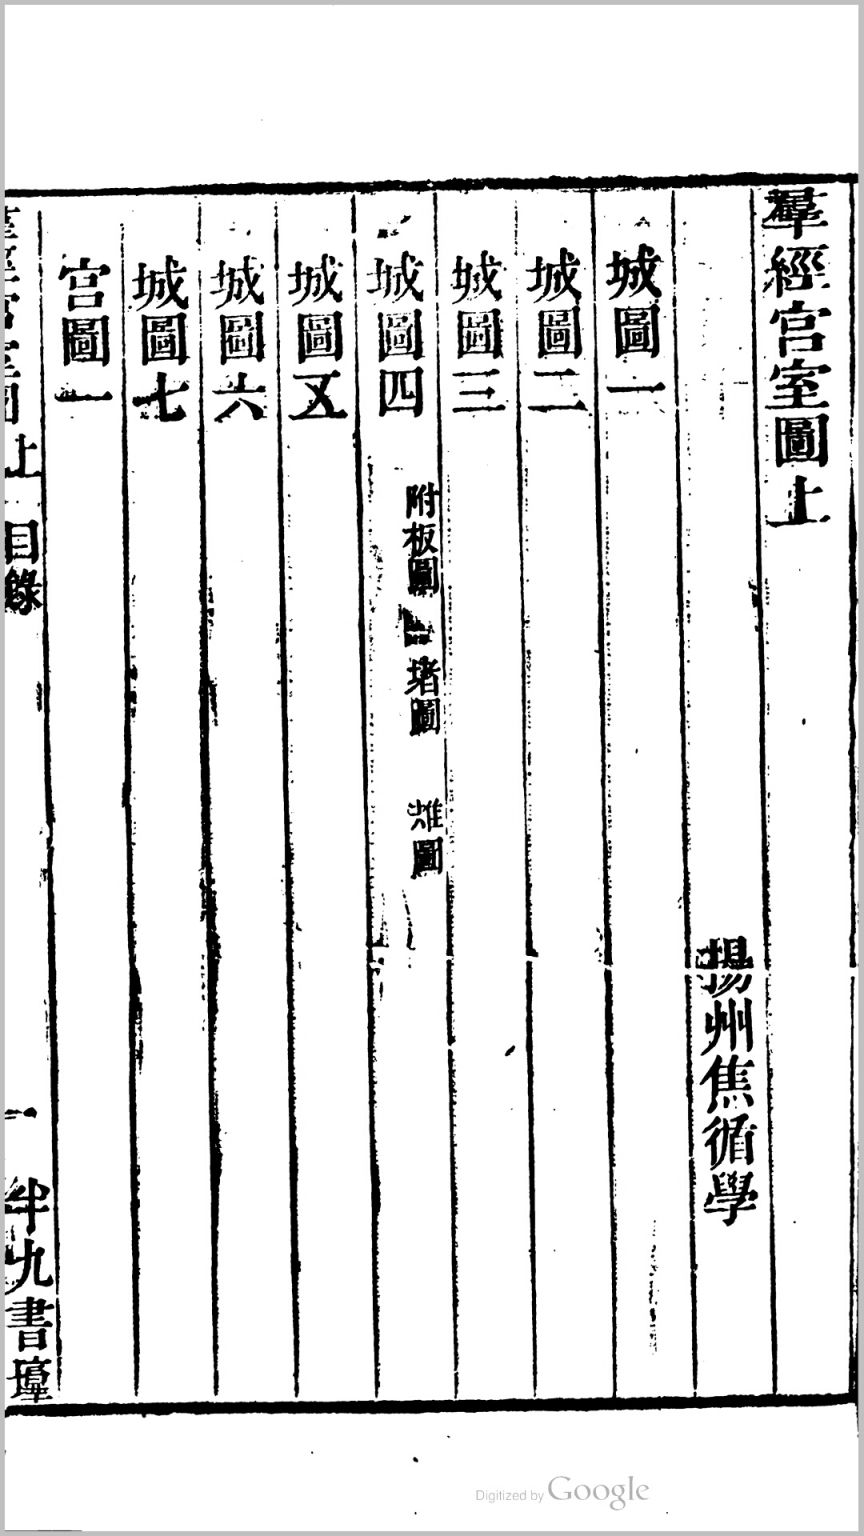 羣經宮室圖上
揚州焦循學
城圖一
城圖二
城圖三
城圖四 附板圖 堵圖 雉圖
城圖五
城圖六
城圖七
宮圖一
羣經宮室圖上 目錄 一 半九書塾
Digitized by Google